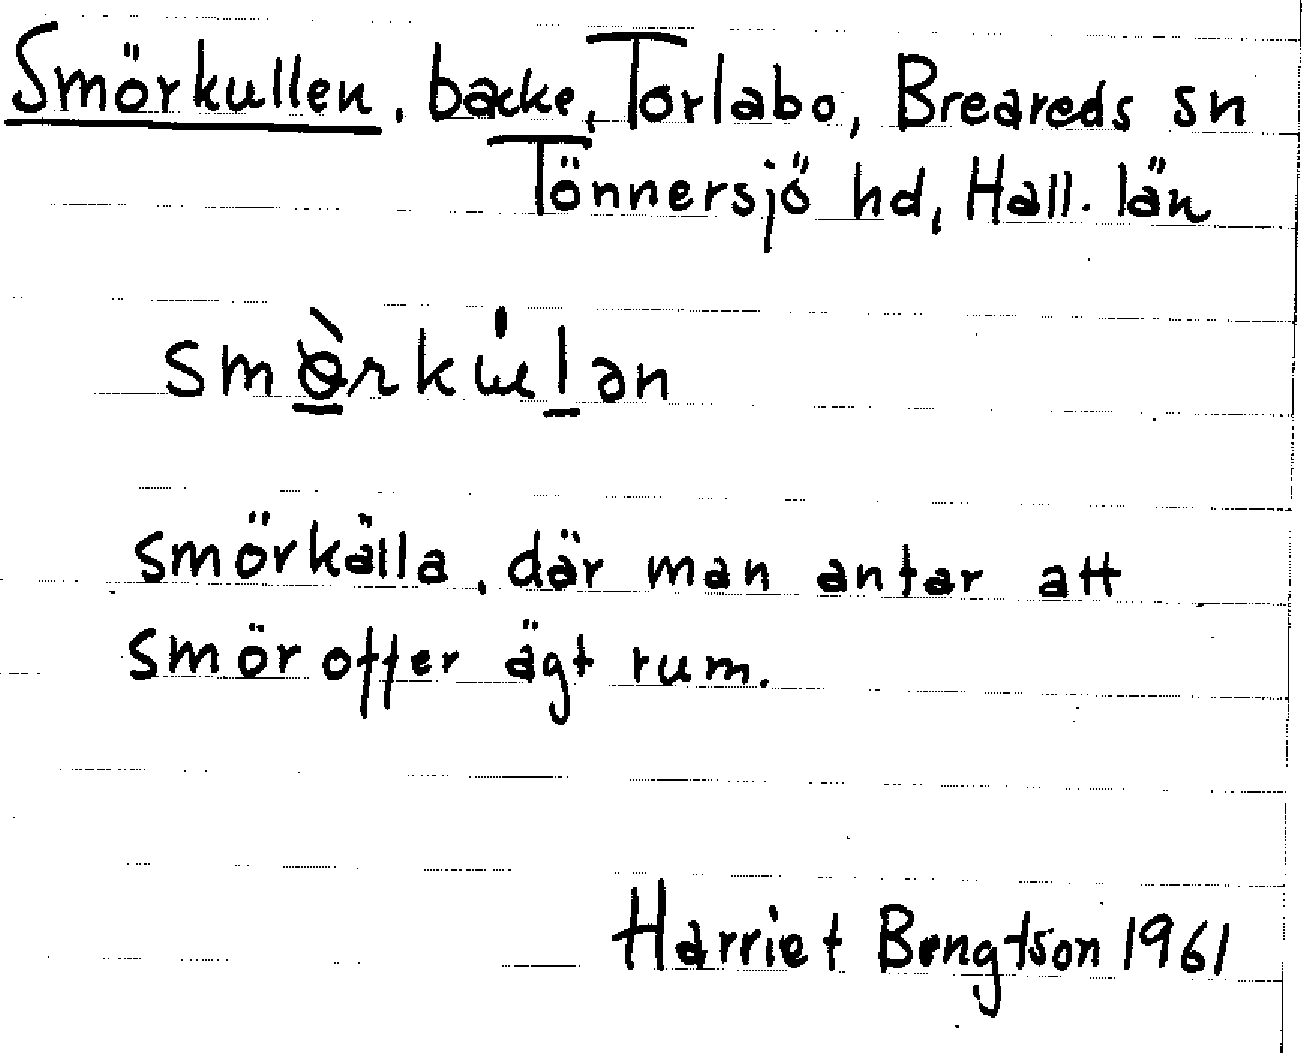 Smörkullen, backe, Torlabo, Breareds sn
Tönnersjö hd, Hall. län
smörkälla, där man antar att
smöroffer ägt rum.
Harriet Bengtson 1961